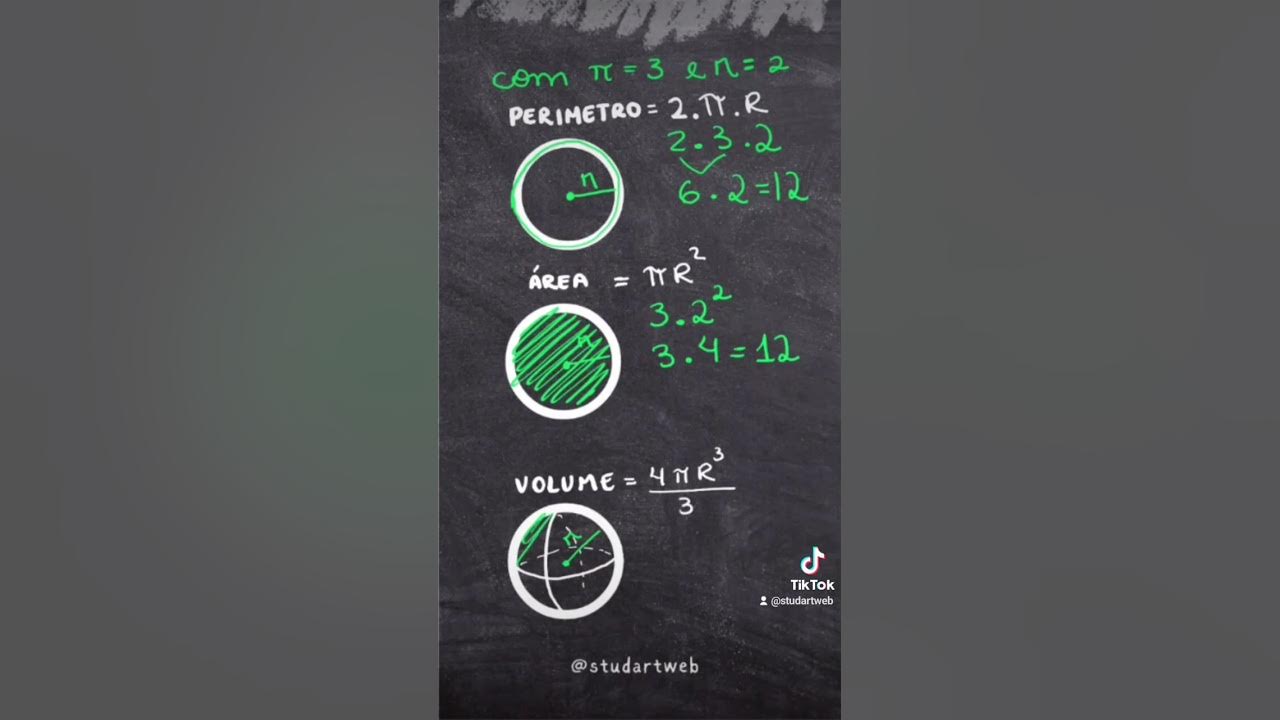 com π = 3 e r = 2
PERIMETRO = 2.π.R
2.3.2
6.2=12
r
ÁREA = πR²
3.2²
r
3.4=12
VOLUME = 4πR³
3
r
TikTok
@studartweb
@studartweb